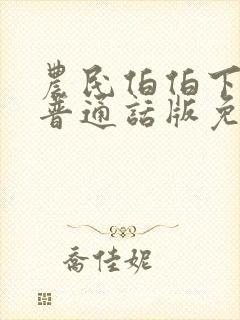 農民伯伯下
普通話版免
喬佳妮